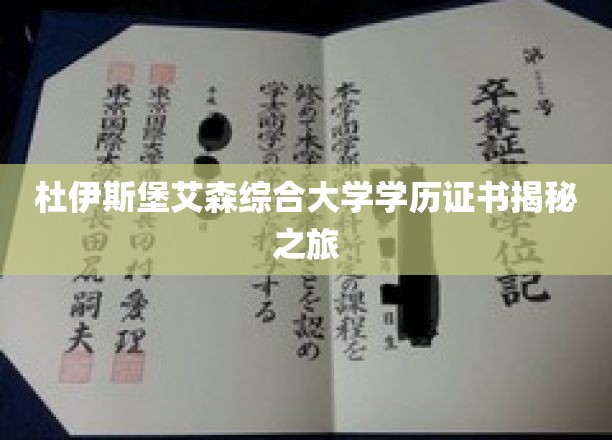 杜伊斯堡艾森综合大学学历证书揭秘
之旅
第 号
卒業証 学位記
本学商学部 科所定の課程を
修めて本学 ことを認め
学士(商学)の 授与する
平成
月 日生
東京国際大学 長 田村愛理
東京国際大学 長 田尻嗣夫